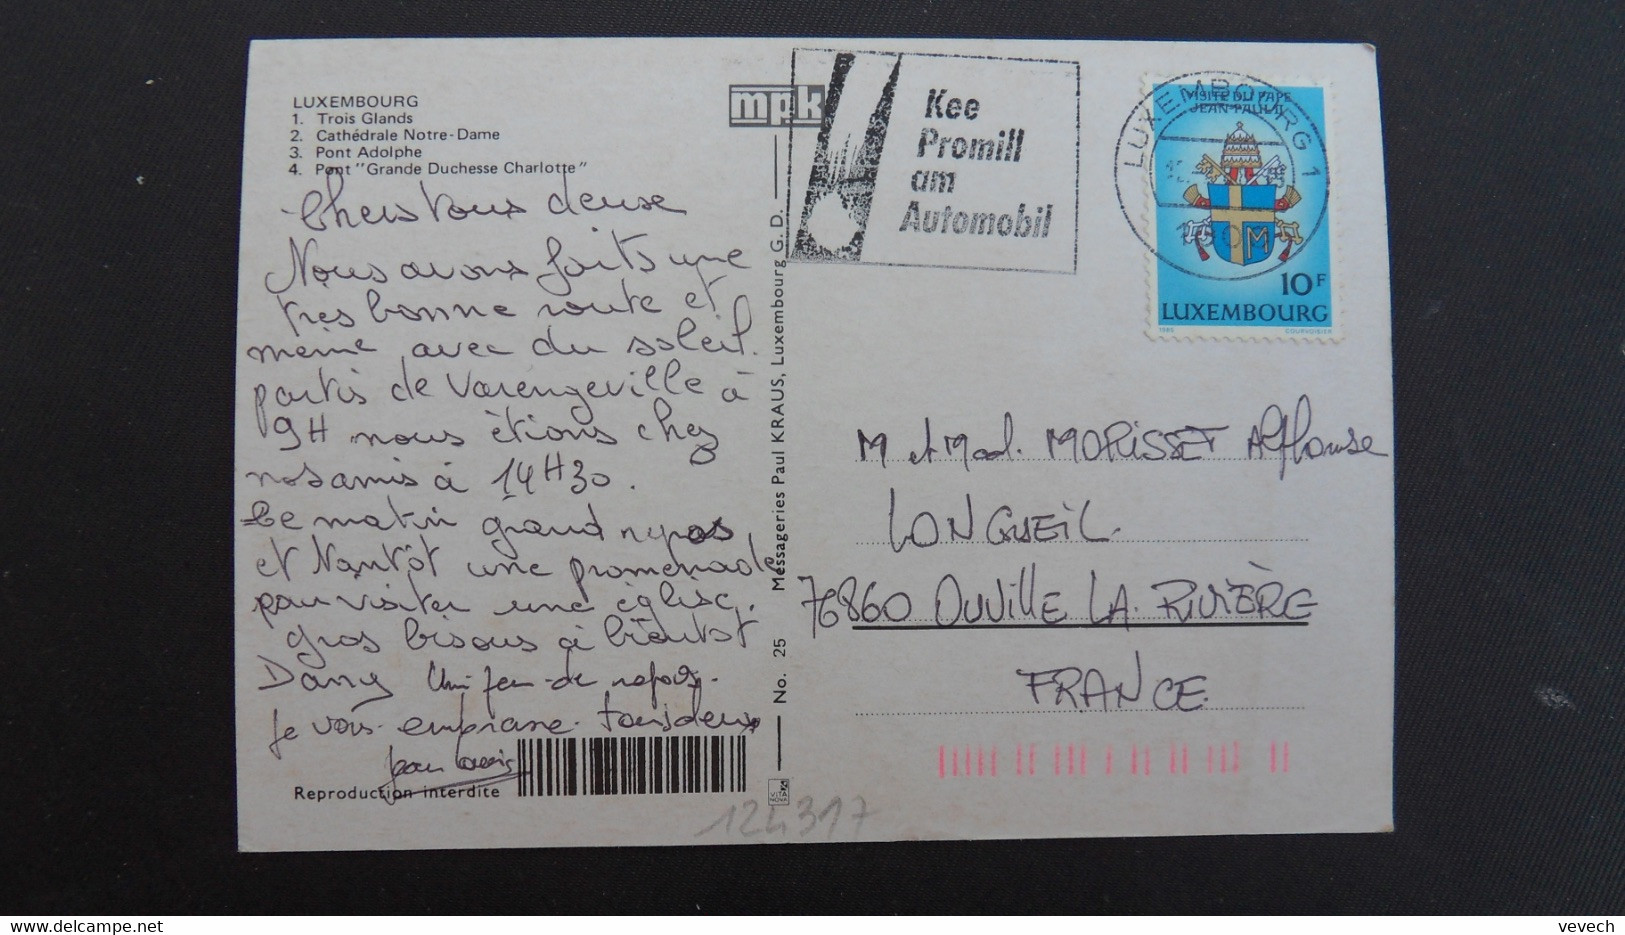 LUXEMBOURG
1. Trois Glands
2. Cathédrale Notre-Dame
3. Pont Adolphe
4. Pont "Grande Duchesse Charlotte"
mpk
Chers tous deux
Nous avons faits une
très bonne route et
même avec du soleil.
partis de Varengeville à
9H nous étions chez
nos amis à 14H30.
Ce matin grand repos
et tantôt une promenade
pour visiter une église.
gros bisous à bientot
Dany Un peu de repos.
Je vous embrasse tous deux
Jean Louis
Reproduction interdite
No. 25 Messageries Paul KRAUS, Luxembourg G. D.
VITA NOVA
124317
Kee
Promill
am
Automobil
LUXEMBOURG 1
VISITE DU PAPE
JEAN-PAUL II
M
10F
LUXEMBOURG
1985 COURVOISIER
M et Mad. MORISSET Alphonse
LONGUEIL.
76860 OUVILLE LA RIVIÈRE
FRANCE.
vevech